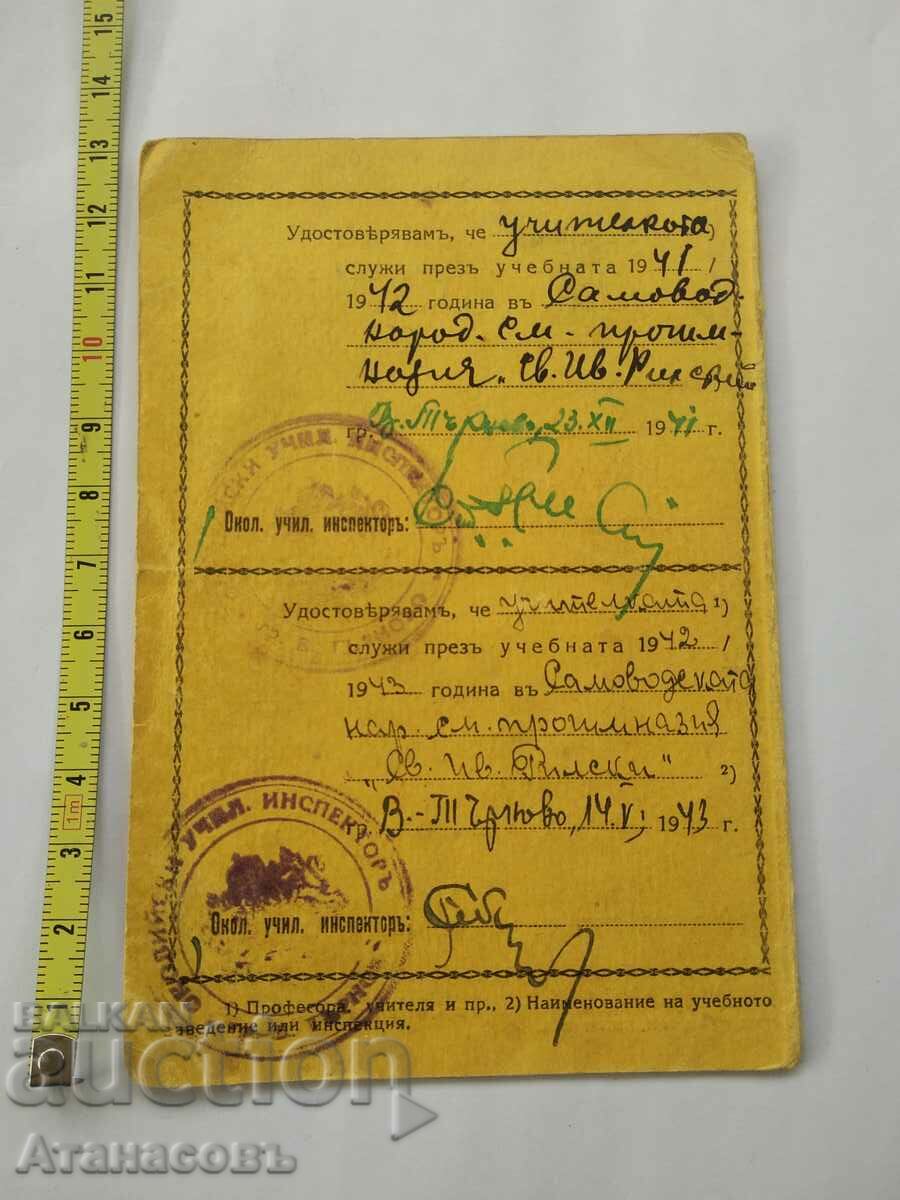 Удостовѣрявамъ, че учителката 1)
служи презъ учебната 1941/
1942 година въ Самовод.
народ. см. прогим-
назия „Св. Ив. Рилски
гр. В. Търново, 23.XII 1941 г.
Окол. учил. инспекторъ:
УЧИЛ. ИНСПЕКТОРЪ
Удостовѣрявамъ, че учителката 1)
служи презъ учебната 1942/
1943 година въ Самоводската
нар. см. прогимназия
„Св. Ив. Рилски" 2)
В.-Търново, 14.VI 1943 г.
УЧИЛ. ИНСПЕКТОРЪ
Окол. учил. инспекторъ:
1) Професора, учителя и пр., 2) Наименование на учебното
заведение или инспекция.
BALKAN
auction
Атанасовъ
15
14
13
12
11
10
9
8
7
6
5
4
1m
3
2